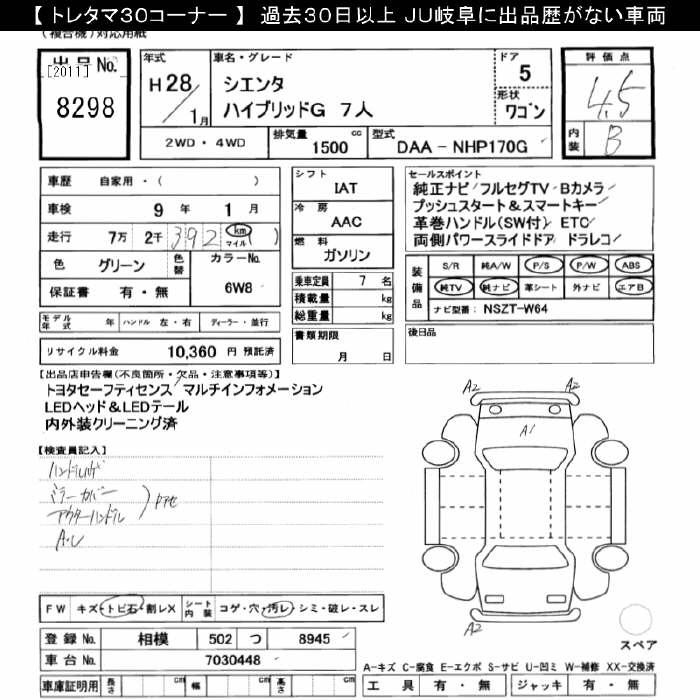 【 トレタマ30コーナー 】 過去30日以上 JU岐阜に出品歴がない車両
（複合機）対応用紙
出品No. 年式 車名・グレード ドア 評価点
[2011] H28/1月 シエンタ 5 4.5
8298 ハイブリッドG 7人 形状 ワゴン 内装 B
2WD ・ 4WD 排気量 1500 cc 型式 DAA - NHP170G
車歴 自家用・( ) シフト IAT セールスポイント
車検 9年 1月 冷房 AAC 純正ナビ/フルセグTV/Bカメラ/
走行 7万 2千 392 km マイル ( ) プッシュスタート＆スマートキー/
燃料 ガソリン 革巻ハンドル(SW付) ETC/
両側パワースライドドア ドラレコ/
色 グリーン 色替 カラーNo. 6W8
保証書 有・無
乗車定員 7 名
積載量 kg
総重量 kg
装備品 S/R 純A/W P/S P/W ABS
純TV 純ナビ 革シート 外ナビ エアB
ナビ型番: NSZT-W64
モデル年式 年 ハンドル 左・右 ディーラー・並行
書類期限 月 日
後日品
リサイクル料金 10,360 円 預託済
【出品店申告欄(不良箇所・欠品・注意事項等)】
トヨタセーフティセンス/マルチインフォメーション
LEDヘッド＆LEDテール
内外装クリーニング済
【検査員記入】
ミラーカバー
アウターハンドル
A・U
A2 A2
A1
A2
FW キズ・トビ石・割レX シート内装 コゲ・穴・汚レ・シミ・破レ・スレ
登録No. 相模 502 つ 8945
車台No. 7030448
スペア
A-キズ C-腐食 E-エクボ S-サビ U-凹ミ W-補修 XX-交換済
車庫証明用 長さ cm 幅 cm 高さ cm
工具 有・無 ジャッキ 有・無